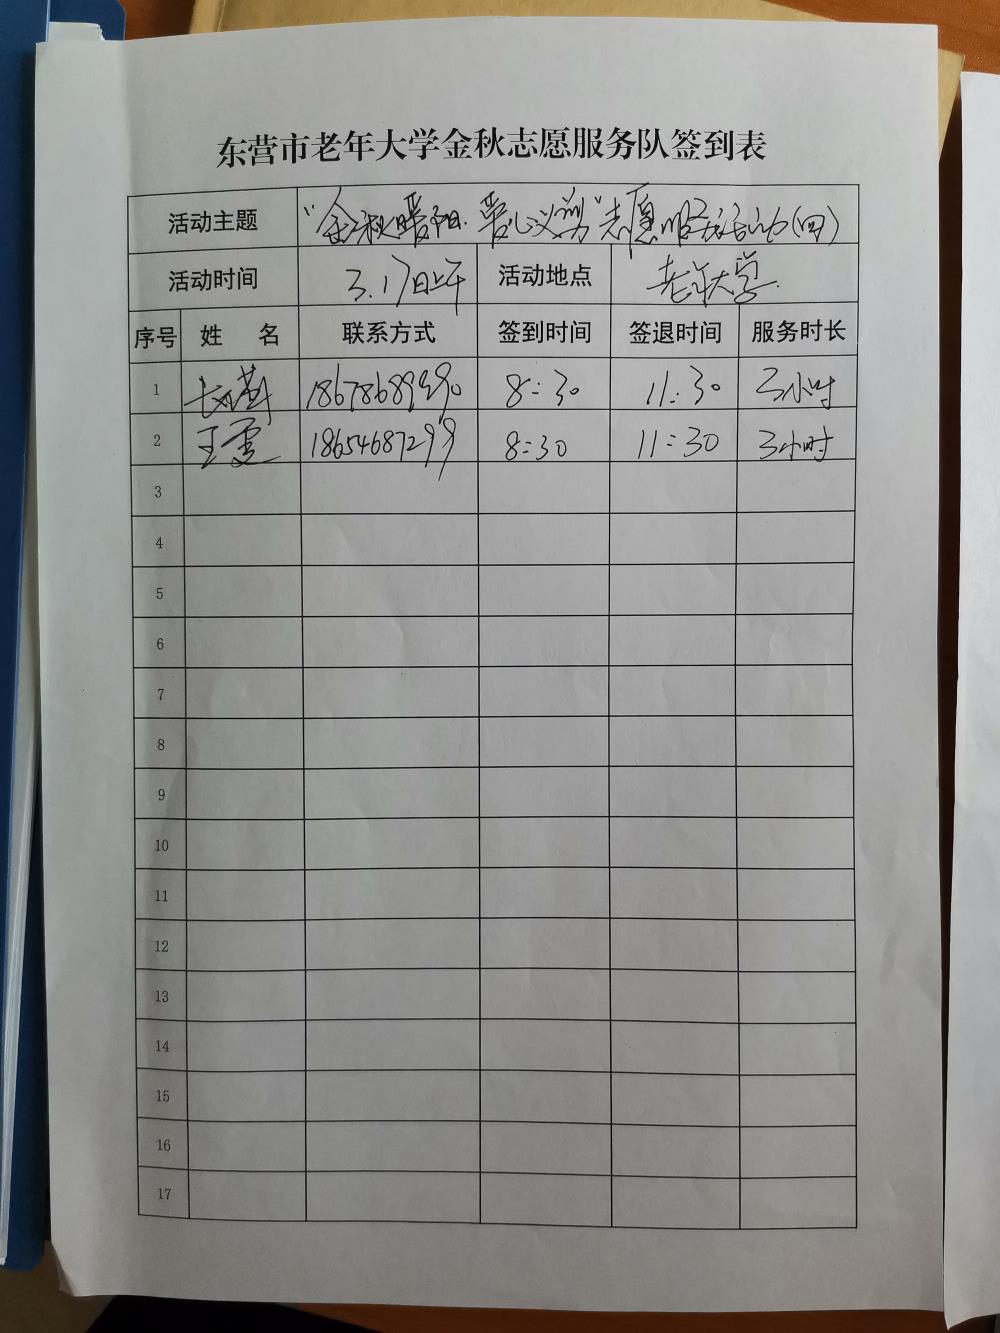 东营市老年大学金秋志愿服务队签到表
活动主题 “金秋暖阳.爱心义剪”志愿服务活动(四)
活动时间 3.17日上午 活动地点 老年大学
序号 姓 名 联系方式 签到时间 签退时间 服务时长
1 8:30 11:30 3小时
2 王雯 18654687299 8:30 11:30 3小时
3
4
5
6
7
8
9
10
11
12
13
14
15
16
17